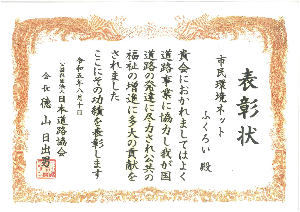 表彰状
市民環境ネット
ふくろい 殿
貴会におかれましてはよく
道路事業に協力し我が国
道路の発達に尽力され公共の
福祉の増進に多大の貢献を
されました
ここにその功績を表彰します
令和五年八月十日
公益社団法人 日本道路協会
会長 德山日出男